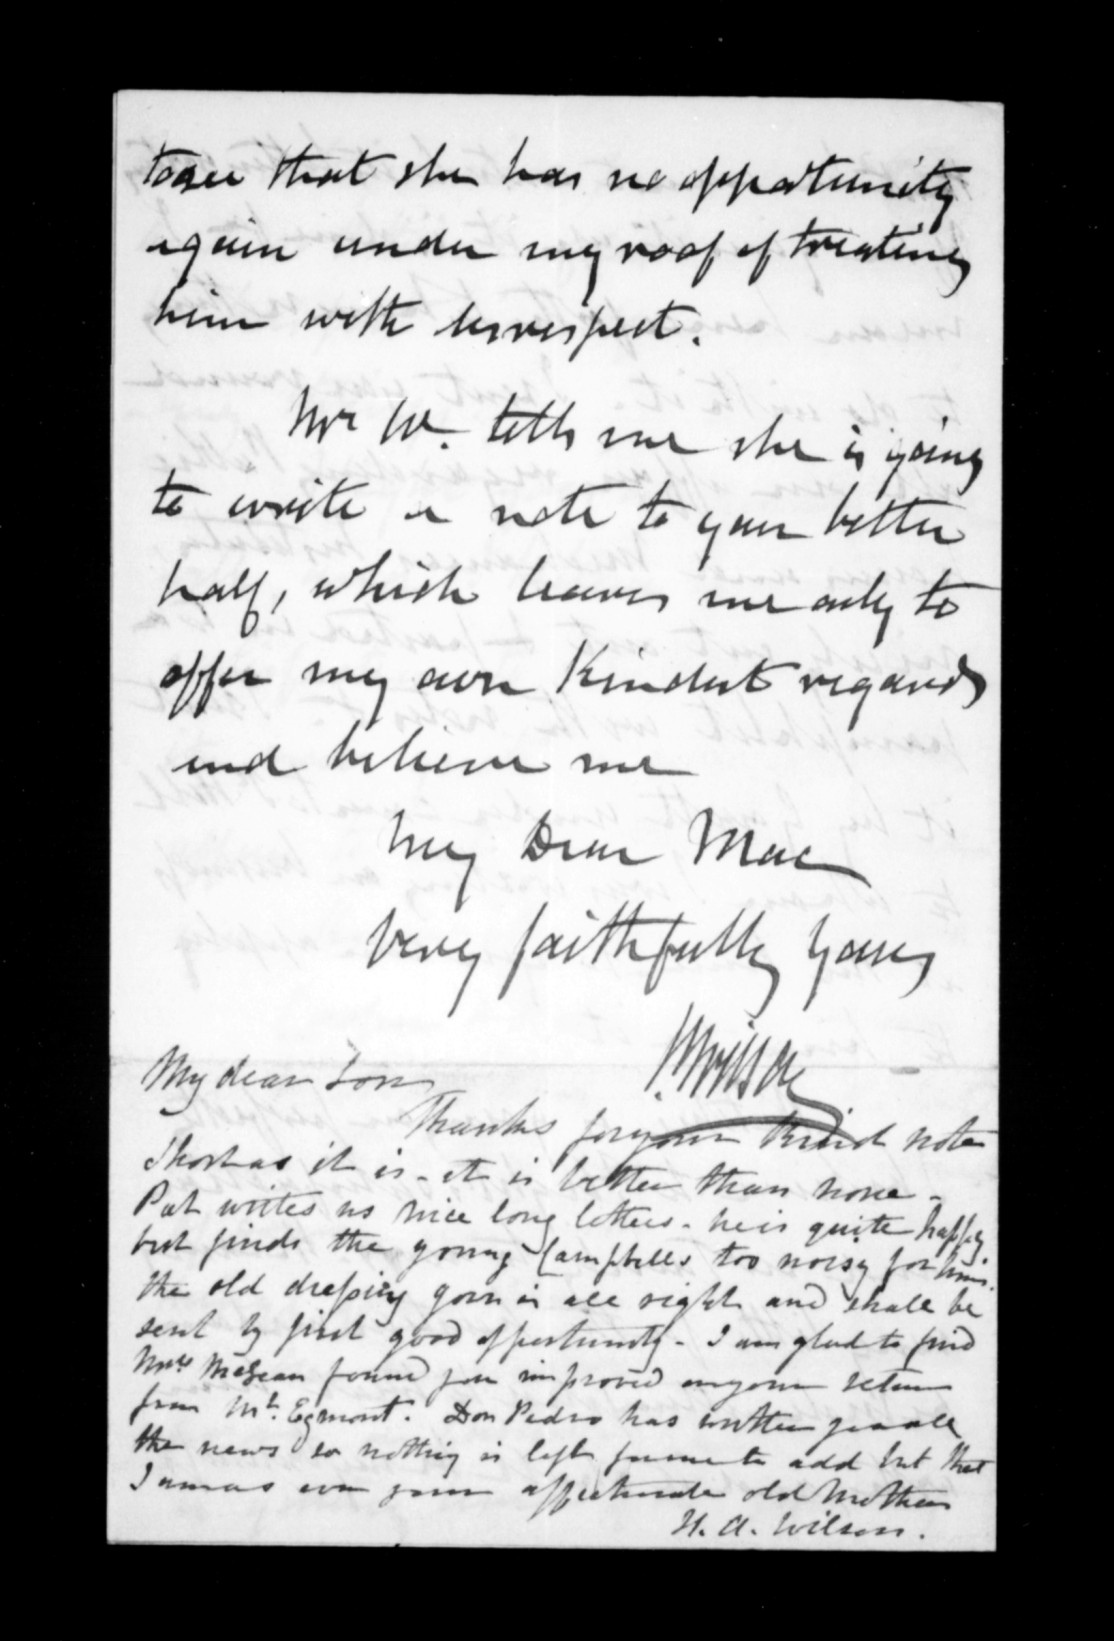 to see that she has no opportunity
again under my roof of treating
him with disrespect.
Mrs W. tells me she is going
to write a note to your better
half, which leaves me only to
offer my own Kindest regards
and believe me
My Dear Mac
Very faithfully Yours
P. Wilson
My dear Son
Thanks for your kind note
Short as it is - it is better than none -
Pat writes us nice long letters - he is quite happy
but finds the young Campbells too noisy for him.
the old dressing gown is all right and shall be
sent by first good opportunity - I am glad to find
Mrs McLean found you improved on your return
from Mt. Egmont. Don Pedro has written you all
the news so nothing is left for me to add but that
I am as ever your affectionate old Mother
H. A. Wilson.